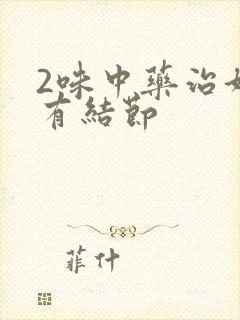 2味中藥治
有結節
菲什